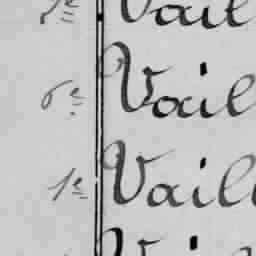 Vail
6e Vail
1e Vail